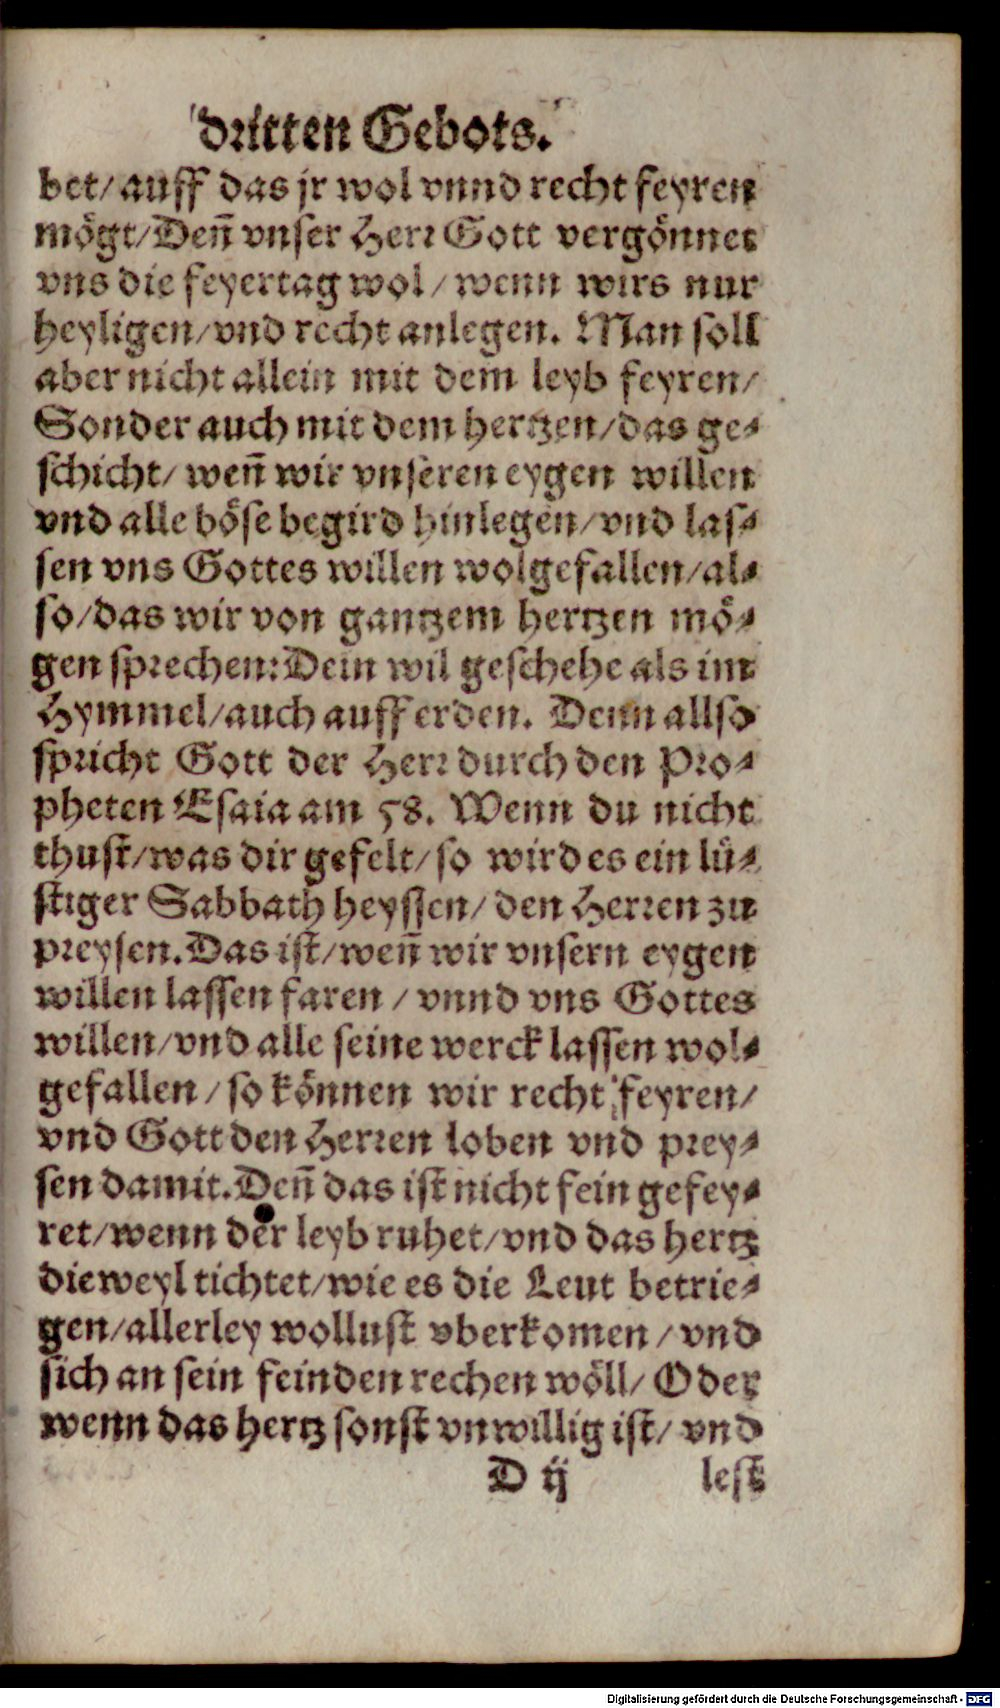 dritten Gebots.
bet/auff das jr wol vnnd recht feyren
mögt/Deñ vnser Herr Gott vergönnet
vns die feyertag wol/wenn wirs nur
heyligen/vnd recht anlegen. Man soll
aber nicht allein mit dem leyb feyren/
Sonder auch mit dem hertzen/das ge⸗
schicht/weñ wir vnseren eygen willen
vnd alle böse begird hinlegen/vnd las⸗
sen vns Gottes willen wolgefallen/al⸗
so/das wir von gantzem hertzen mö⸗
gen sprechen:Dein wil geschehe als im
Hymmel/auch auff erden. Denn allso
spricht Gott der Herr durch den Pro⸗
pheten Esaia am 58. Wenn du nicht
thust/was dir gefelt/so wird es ein lü⸗
stiger Sabbath heyssen/den Herren zu
preysen.Das ist/weñ wir vnsern eygen
willen lassen faren/vnnd vns Gottes
willen/vnd alle seine werck lassen wol⸗
gefallen/so können wir recht feyren/
vnd Gott den Herren loben vnd prey⸗
sen damit.Deñ das ist nicht fein gefey⸗
ret/wenn der leyb ruhet/vnd das hertz
dieweyl tichtet/wie es die Leut betrie⸗
gen/allerley wollust vberkomen/vnd
sich an sein feinden rechen wöll/Oder
wenn das hertz sonst vnwillig ist/vnd
D ij lest
Digitalisierung gefördert durch die Deutsche Forschungsgemeinschaft - DFG